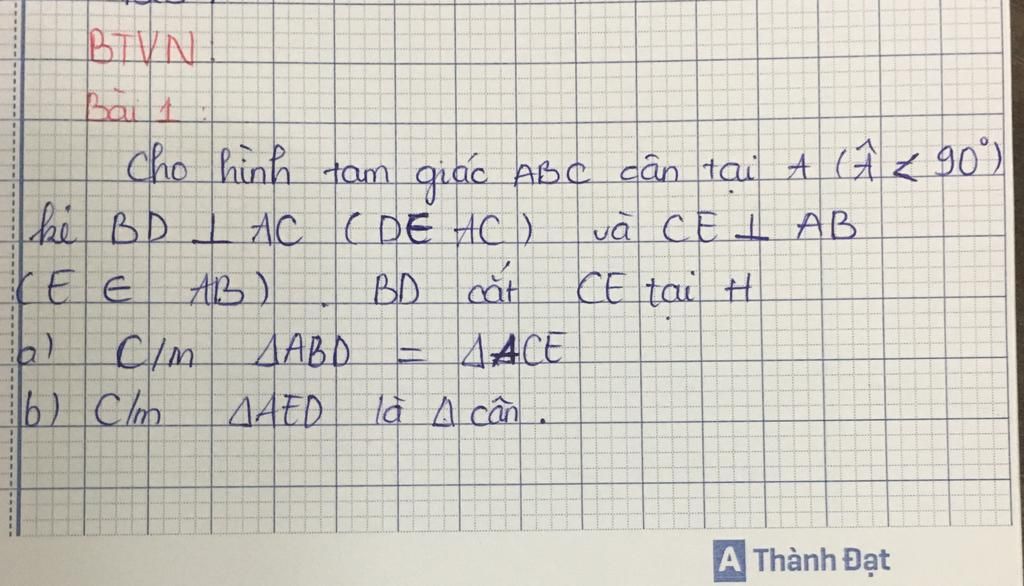 BTVN
Bài 1:
Cho hình tam giác ABC cân tại A (Â < 90°)
kẻ BD ⊥ AC (D ∈ AC) và CE ⊥ AB
(E ∈ AB). BD cắt CE tại H
a) C/m ΔABD = ΔACE
b) C/m ΔAED là Δ cân.
A Thành Đạt